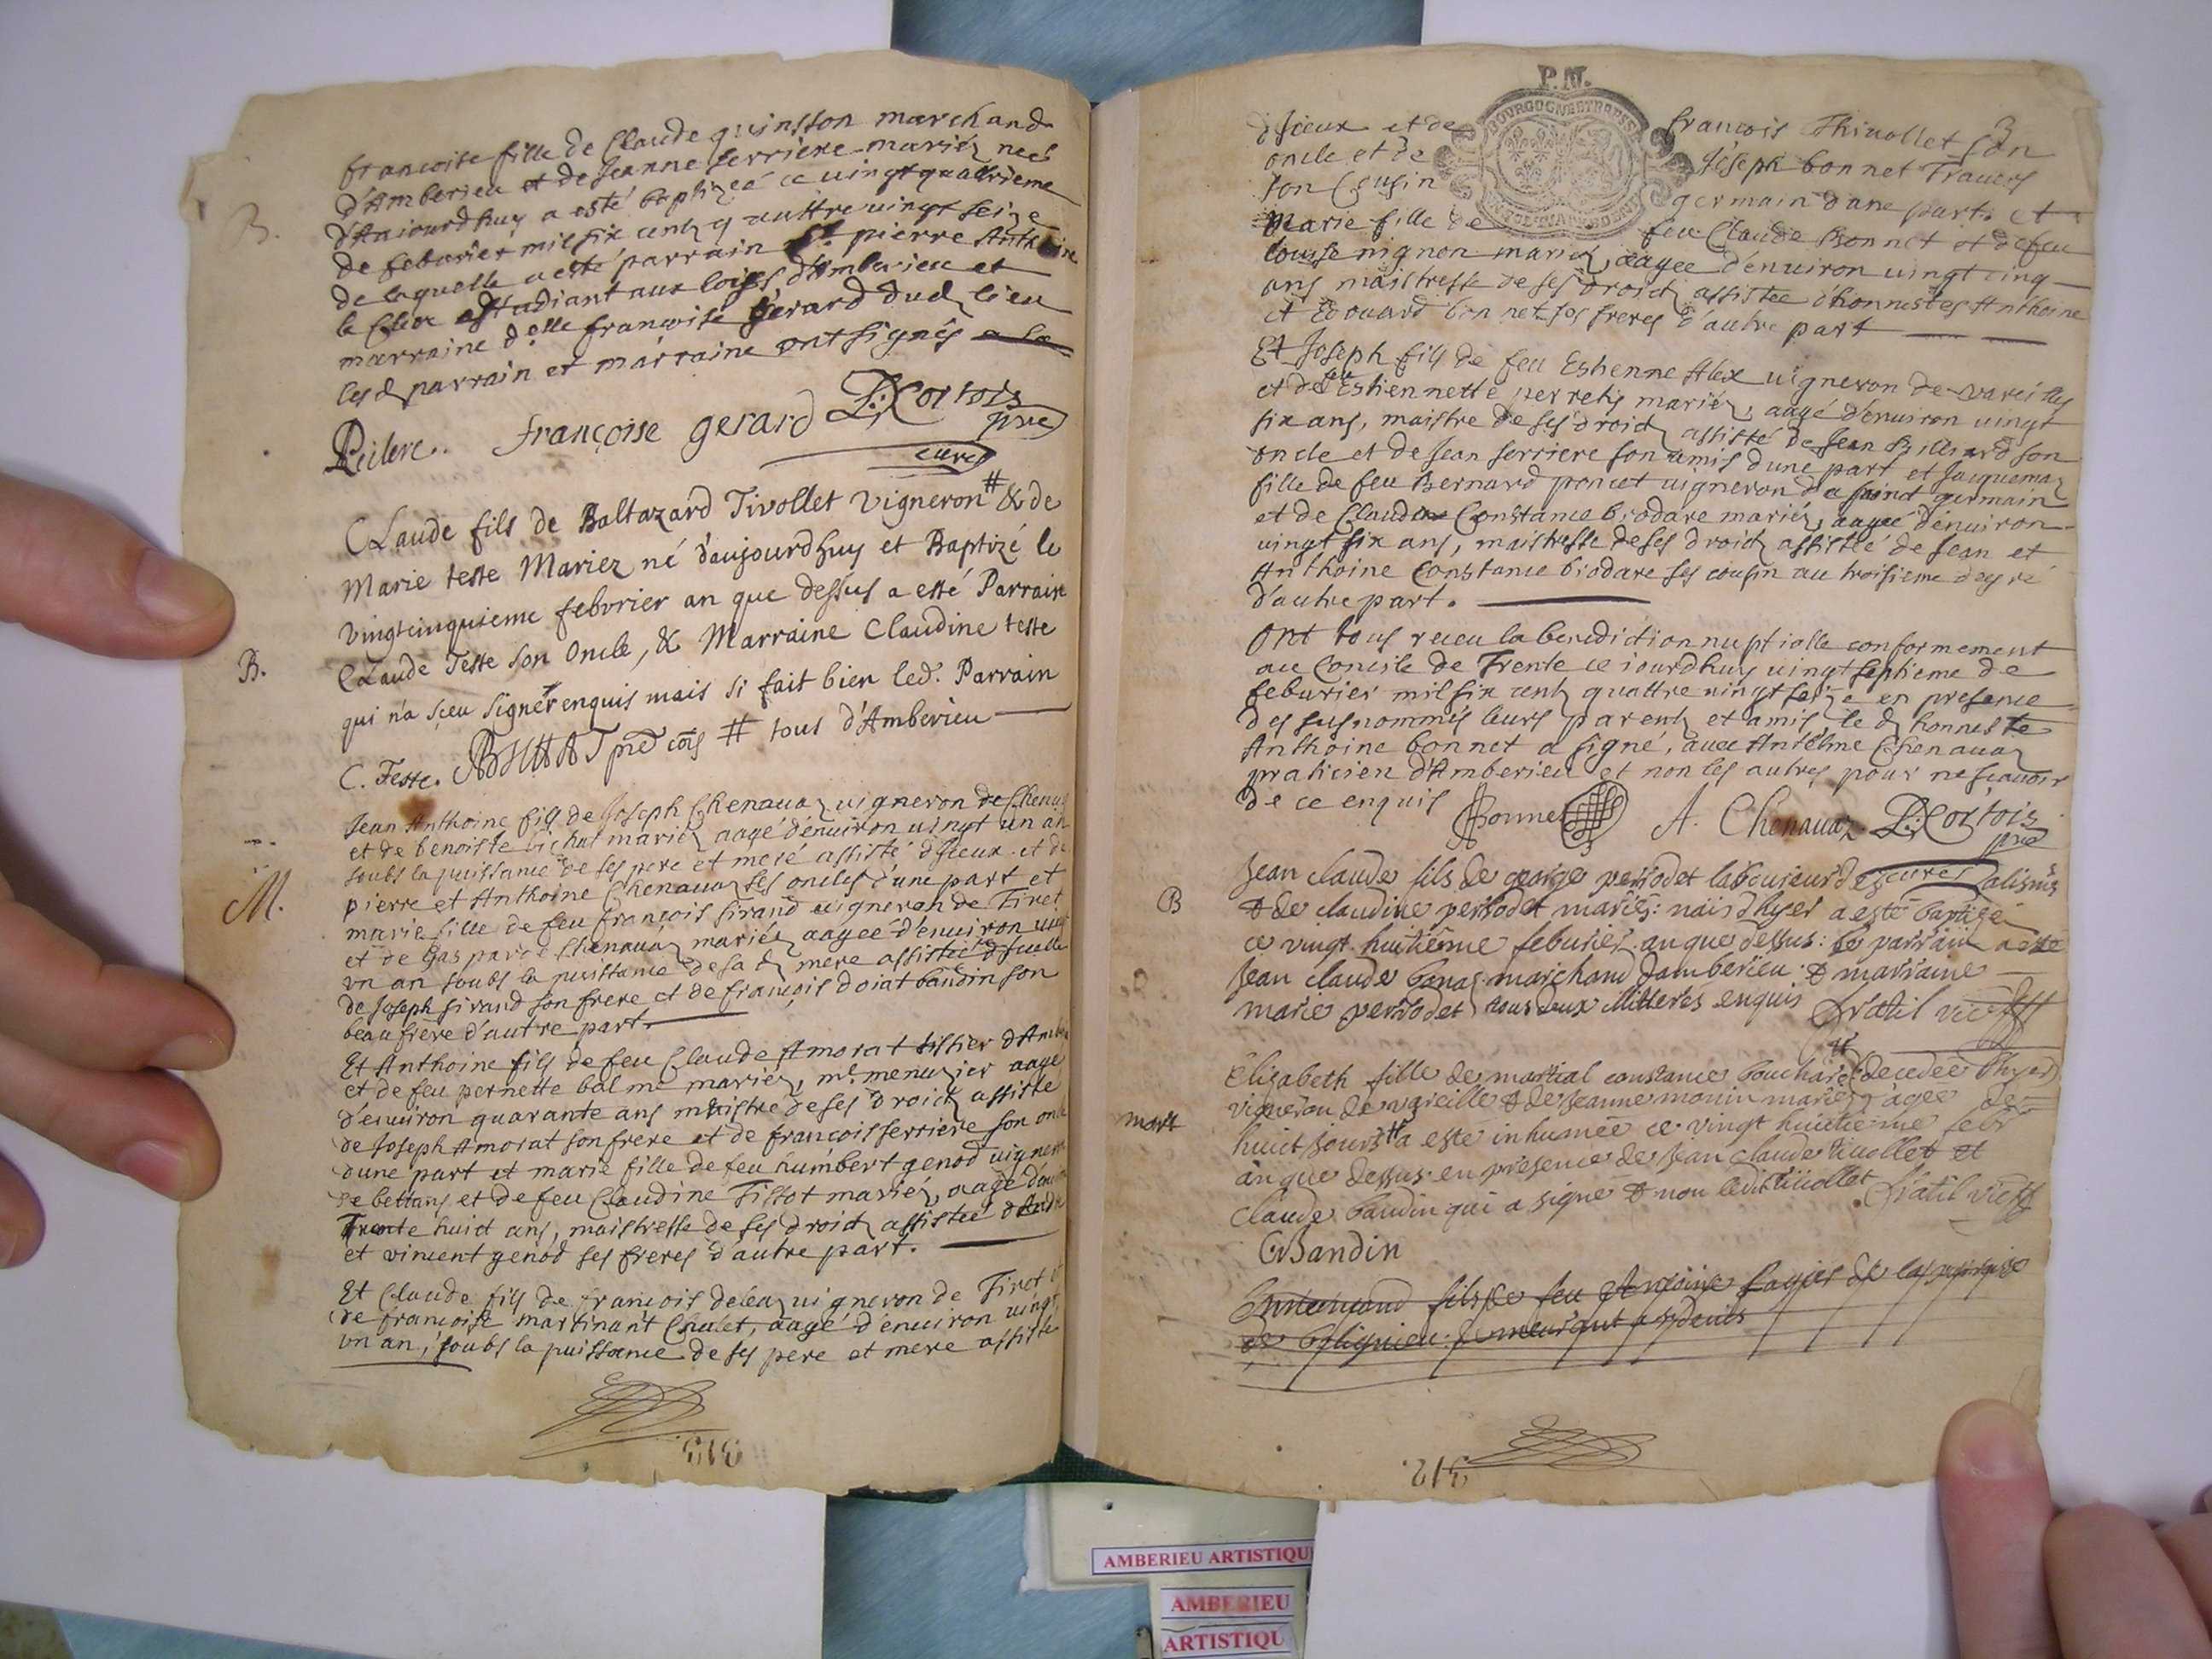 B.
francoise fille de Claude quinsson marchand
d'Amberieu et de Jeanne serriere mariéz née
d'Aujourdhuy a esté baptizeé ce vingtquattrieme
de feburier mil six centz quattre vingt seize
de laquelle a esté parrain Sr. pierre Anthoine
le Clerc estudiant aux loix d'Amberieu et
marraine dolle francoise Gerard dud lieu
lesd parrain et marraine ont signés
Leclerc. françoise gerard Cortois
pre
curé
B.
CLaude fils de Baltazard Tivollet vigneron # & de
Marie teste Mariez né d'aujourdhuy et Baptizé le
vingtcinquieme febvrier an que dessus a esté Parrain
CLaude Teste son Oncle, & Marraine Claudine teste
qui n'a sçeu signer enquis mais si fait bien led. Parrain
C. Teste. # tous d'Amberieu
M.
Jean Anthoine fils de Joseph Chenauaz uigneron de
et de benoiste bichat mariéz aagé d'enuiron uingt un an
soubs la puissance de ses pere et mere assisté d'Iceux et de
pierre et Anthoine Chenauaz ses oncles d'une part et
marie fille de feu francois sirand uigneron de Tiret
et de Gasparde Chenauaz mariéz aagee d'enuiron uingt
vn an soubs la puissance de sa d mere assistée d'Icelle
de Joseph sirand son frere et de françois doiat bandin son
beau frere d'autre part.
Et Anthoine fils de feu Claude Amorat tissier d'Amb
et de feu pernette balme mariéz, me. menuzier aagé
d'enuiron quarante ans maistre de ses droictz assisté
de Joseph Amorat son frere et de francois serriere son oncle
dune part et marie fille de feu humbert genod uigneron
de bettans et de feu Claudine Tissot mariéz, aagé d'enui
Trente huict ans, maistresse de ses droictz assistée d'Andre
et vincent genod ses freres d'autre part.
Et Claude fils de francois deleaz uigneron de Tiret et
de francoise martinant Chalet, aagé d'enuiron uingt
vn an, soubs la puissance de ses pere et mere assisté
313
P.M.
d'Iceux et de francois Thiuollet son
oncle et de Joseph bonnet Trauers
son Cousin germain d'une part. et
Marie fille de feu Claude Bonnet et de feu
Louise mignon mariéz, aagee d'enuiron uingt cinq
ans maistresse de ses droictz assistee d'honnestes Anthoine
et Edouard bonnet ses freres d'autre part
Et Joseph fils de feu Estienne Alex uigneron de vareilles
et de feu Estiennette perretis mariéz, aagé d'enuiron uingt
six ans, maistre de ses droictz assisté de Jean Billiard son
oncle et de Jean serriere son amis d'une part et Jaquemaz
fille de feu Bernard poncet uigneron de saint germain
et de Claudaz Constance brodare mariéz, aagee d'enuiron
uingt six ans, maistresse de ses droictz assistée de Jean et
Anthoine Constance brodare ses cousin au troisieme degré
d'autre part.
Ont tous receu la benediction nuptialle conformement
au Concile de Trente ce iourdhuy uingt septieme de
feburier mil six centz quattre uingt seize en presence
des susnommés leurs parentz et amis, le d honneste
Anthoine bonnet a signé, auec Antelme Chenauaz
praticien d'Amberieu et non les autres pour ne scauoir
de ce enquis Bonnet A. Chenauaz Cortois
pre
curé
B
Jean claude fils de george perrodet laboureur
& de claudine perrodet mariés: nais dhyer a esté baptisé
ce vingt huitiéme feburier an que dessus: le parrain a esté
Jean claude bonas marchand damberieu & marraine
marie perrodet tous deux illitterés enquis vic
mort
Elizabeth fille de martial constance bouchard # decedeé dhyer
vigneron de vareille & de Jeanne monin mariés, ageé de
huict jours # a esté inhumeé ce vingt huitieme febr
an que dessus en presence de Jean claude tiuollet et
claude baudin qui a signé & non ledit tiuollet
CBandin
fils de feu Antoine
312.
AMBERIEU ARTISTIQU
AMBERIEU
ARTISTIQU